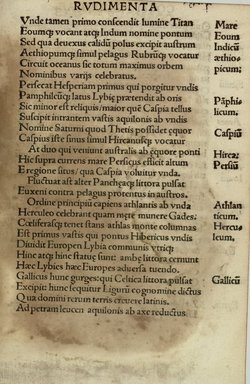 RVDIMENTA
Vnde tamen primo conscendit lumine Titan
Eoumq; vocant atq; Indum nomine pontum
Sed qua deuexus calidū polus excipit austrum
Aethiopumq; simul pelagus Rubrūq; vocatur
Circuit oceanus sic totum maximus orbem
Nominibus varijs celebratus.
Perfecat Hesperiam primus qui porgitur vndis
Pamphiliceq; latus Lybię prætendit ab oris
Sic minor est reliquis/maior quē Caspia tellus
Suscipit intrantem vastis aquilonis ab vndis
Nomine Saturni quod Thetis possidet equor
Caspius iste sinus simul Hircanusq; vocatur
At duo qui veniunt australis ab equore ponti
Hic supra currens mare Persicus efficit altum
E regione situs/qua Caspia voluitur vnda.
Fluctuat ast alter Pancheaq; littora pulsat
Euxeni contra pelagus protentus in austros.
Ordine principia capiens athlantis ab vnda
Herculeo celebrant quam mętę munere Gades.
Cœliferasq; tenet stans athlas monte columnas
Est primus vastis qui pontus Hibericus vndis
Diuidit Europen Lybia communis vtriq;
Hinc atq; hinc statuę sunt: ambę littora cernunt
Hæc Lybies hæc Europes aduersa tuendo.
Gallicus hunc gurges: qui Celtica littora pulsat
Excipit: hunc sequitur Ligurū cognomine dictus
Qua domini rerum terris creuere latinis.
Ad petram leucen aquilonis ab axe reductus
Mare
Eoum
Indicū
æthio-
picum:
Pāphi-
licum.
Caspiū
Hircā:
Persiū
Athlan
ticum.
Hercu-
leum.
Gallicū